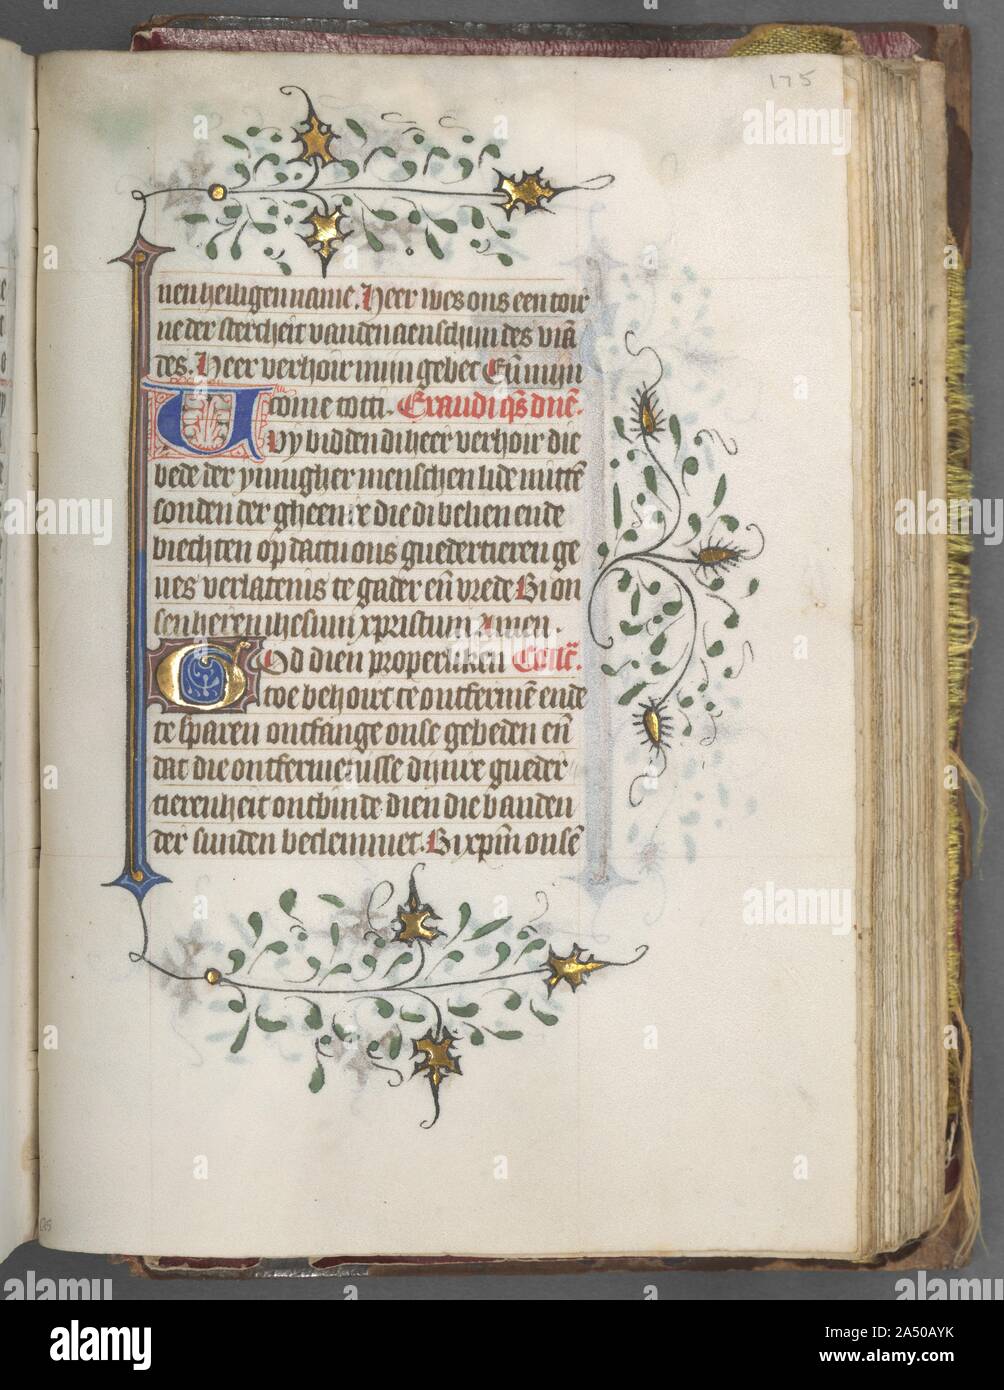 175
nen heiligen name. Heer wes ons een toir
ne der stercheit vanden aenschijn des viā
des. Heer verhoir mijn gebet Eñ mijn
come totti. Exaudi qs dñe.
Vvy bidden di heer verhoir die
bede der ynnigher menschen lide mitten
sonden der gheenre die di belien ende
biechten op dattu ons guedertieren ge
ues verlatenis te gader eñ vrede Bi on
sen heren ihesum xpristum Amen.
God dien properliken Collē.
toe behoirt te ontfermē ende
te sparen ontfange onse gebeden eñ
dat die ontfermenisse dijnre gueder
tierenheit ontbinde dien die banden
der sunden beclemmet. Bi xpm̄ onsē
alamy
alamy
Image ID: 2A50AYK
www.alamy.com